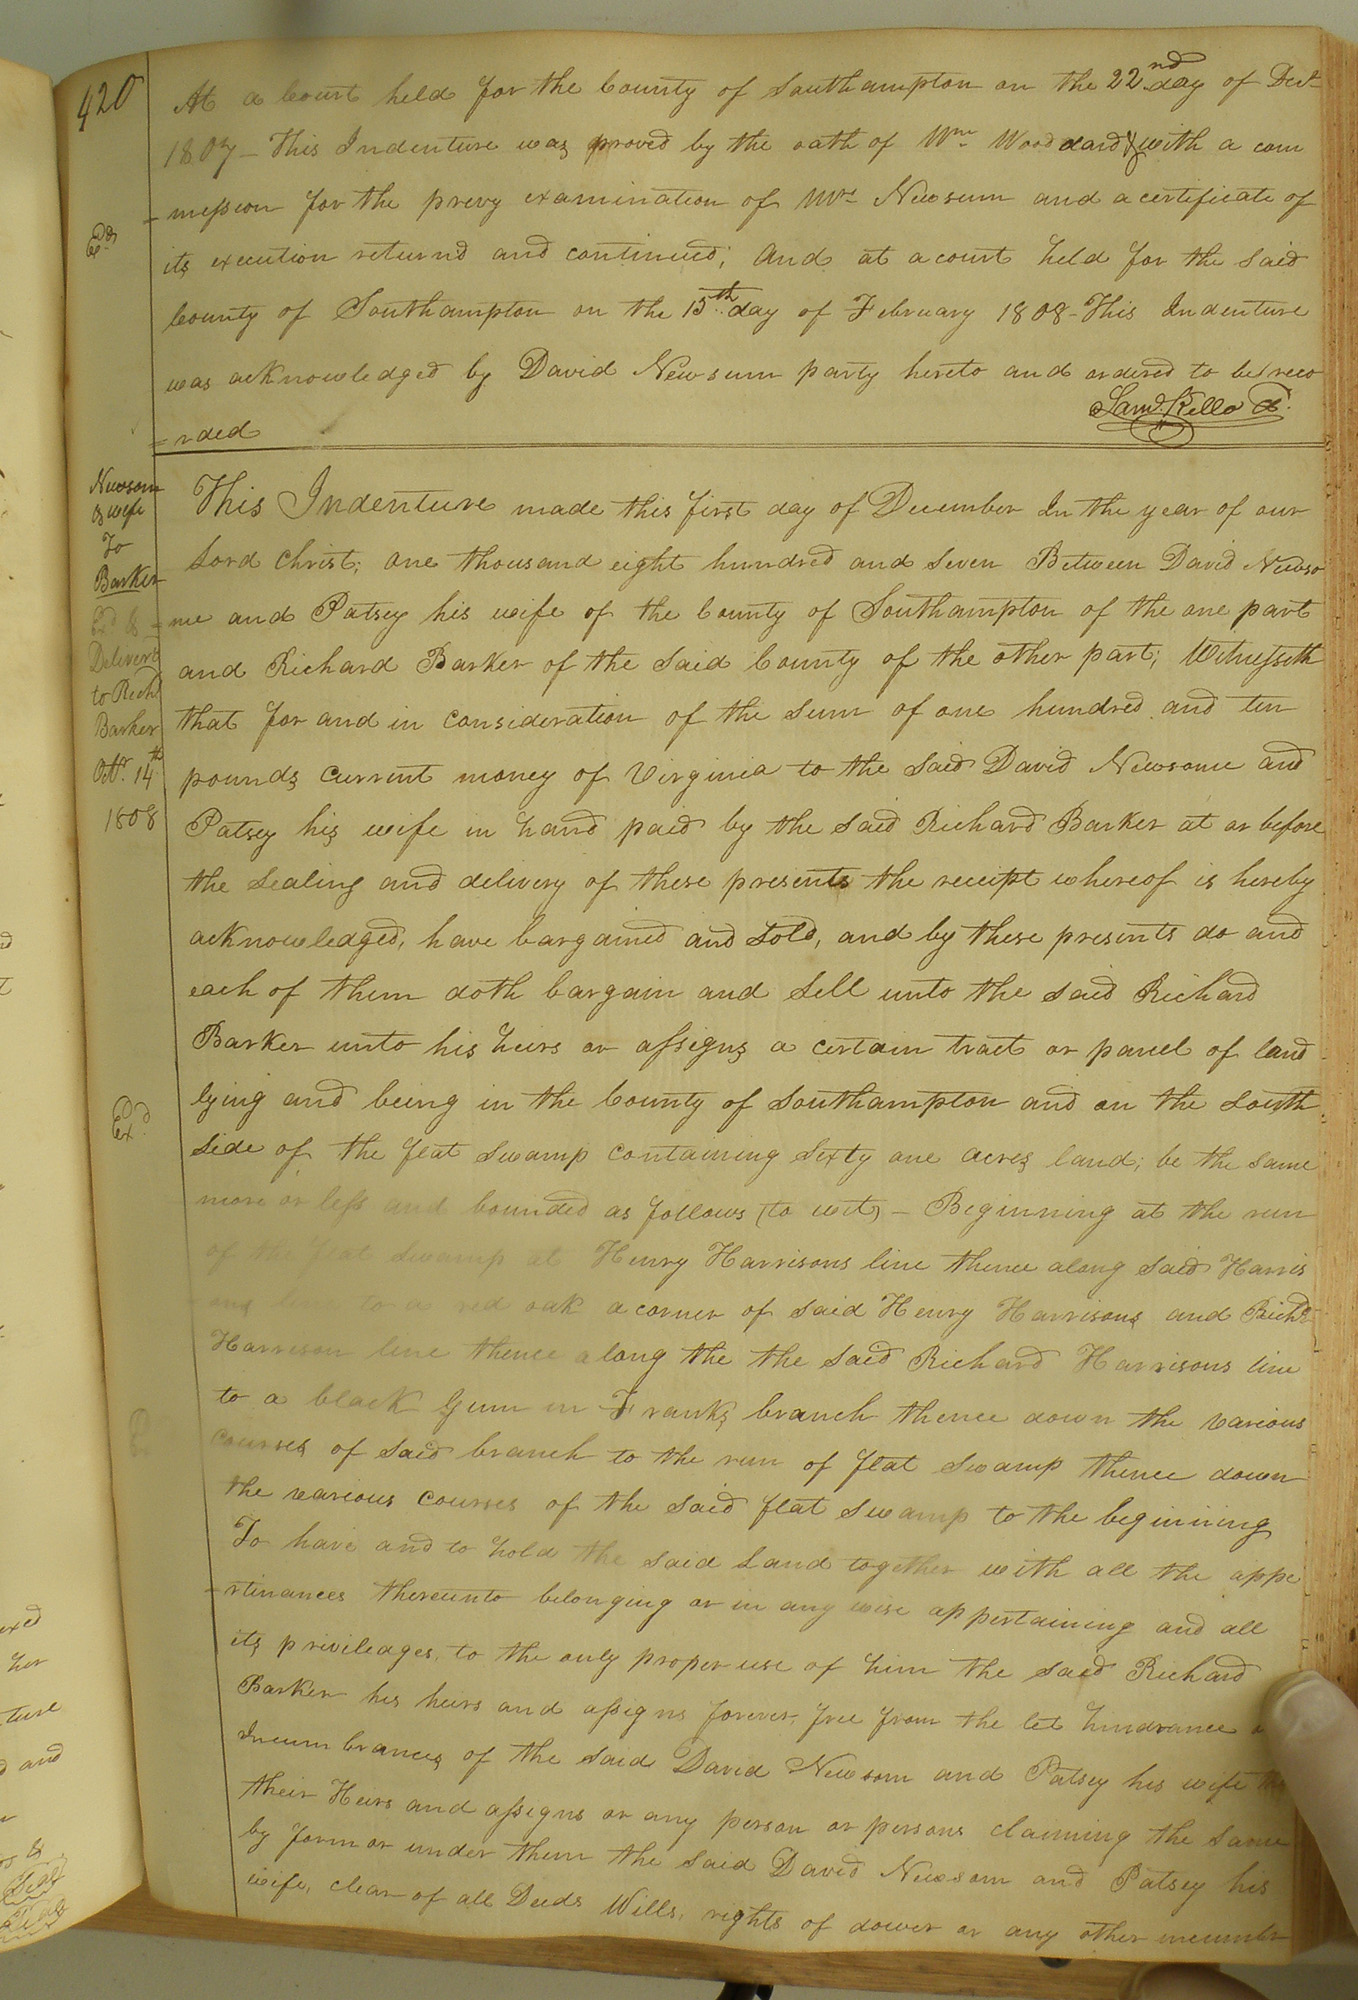 420
At a Court held for the County of Southampton on the 22nd day of Dect
1807 - This Indenture was proved by the oath of Wm Wooddard & with a com
= mession for the prevy examination of Mrs Newsum and a certificate of
its execution returnd and continued; And at a court held for the said
County of Southampton on the 15th day of February 1808 - This Indenture
was acknowledged by David Newsum party hereto and ordered to be reco
= rded
Saml. Kello Ct.
Newsom
& wife
To
Barker
Exd &
Deliverd
to Richd
Barker
Octr. 14th
1808
This Indenture made this first day of December In the year of our
Lord Christ; one thousand eight hundred and seven Between David Newso
= me and Patsey his wife of the County of Southampton of the one part
and Richard Barker of the said County of the other part; Witnesseth
that for and in consideration of the sum of one hundred and ten
pounds current money of Virginia to the said David Newsome and
Patsey his wife in hand paid by the said Richard Barker at or before
the sealing and delivery of these presents the receipt whereof is hereby
acknowledged, have bargained and sold, and by these presents do and
each of them doth bargain and sell unto the said Richard
Barker unto his heirs or assigns a certain tract or parcel of land
lying and being in the County of Southampton and on the south
Exd.
side of the flat swamp containing sixty one acres land; be the same
more or less and bounded as follows (to wit) - Beginning at the run
of the flat swamp at Henry Harrisons line thence along said Harris
ons line to a red oak a corner of said Henry Harrisons and Richd
Harrison line thence along the the said Richard Harrisons line
to a black Gum in Franks branch thence down the various
courses of said branch to the run of flat swamp thence down
the various courses of the said flat swamp to the beginiing
To have and to hold the said Land together with all the appe
= rtinances thereunto belonging or in any wise appertaining and all
its privileages, to the only proper use of him the said Richard
Barker his heirs and assigns forever, free from the let hindrance
Incumbrances of the said David Newsom and Patsey his wife
their Heirs and assigns or any person or persons claiming the same
by form or under them the said David Newsom and Patsey his
wife, clear of all Deeds Wills, rights of dower or any other incumbr